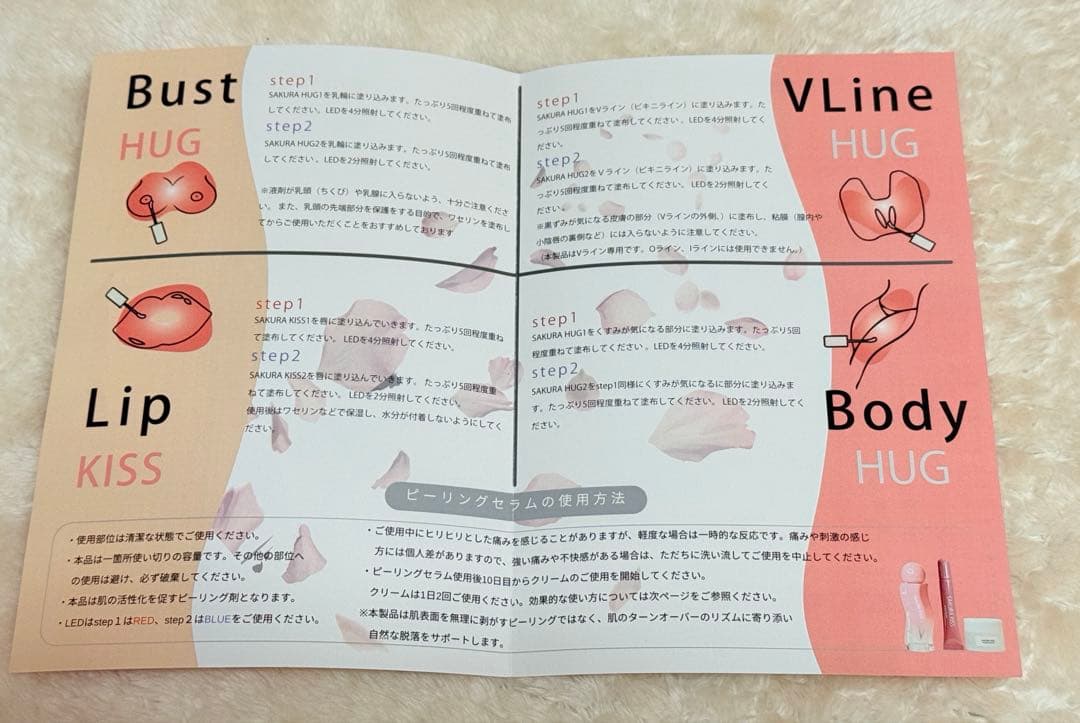 Bust
HUG
step1
SAKURA HUG1を乳輪に塗り込みます。たっぷり5回程度重ねて塗布
してください。LEDを4分照射してください。
step2
SAKURA HUG2を乳輪に塗り込みます。たっぷり5回程度重ねて塗布
してください。LEDを2分照射してください。
※液剤が乳頭（ちくび）や乳腺に入らないよう、十分ご注意くださ
い。また、乳頭の先端部分を保護をする目的で、ワセリンを塗布し
てからご使用いただくことをおすすめしております
VLine
HUG
step1
SAKURA HUG1をVライン（ビキニライン）に塗り込みます。た
っぷり5回程度重ねて塗布してください。LEDを4分照射してく
ださい。
step2
SAKURA HUG2をVライン（ビキニライン）に塗り込みます。た
っぷり5回程度重ねて塗布してください。LEDを2分照射してく
ださい。
※黒ずみが気になる皮膚の部分（Vラインの外側、）に塗布し、粘膜（膣内や
小陰唇の裏側など）には入らないように注意してください。
（本製品はVライン専用です。Oライン、Iラインには使用できません。）
Lip
KISS
step1
SAKURA KISS1を唇に塗り込んでいきます。たっぷり5回程度重ね
て塗布してください。LEDを4分照射してください。
step2
SAKURA KISS2を唇に塗り込んでいきます。たっぷり5回程度重
ねて塗布してください。LEDを2分照射してください。
使用後はワセリンなどで保湿し、水分が付着しないようにしてく
ださい。
step1
SAKURA HUG1をくすみが気になる部分に塗り込みます。たっぷり5回
程度重ねて塗布してください。LEDを4分照射してください。
step2
SAKURA HUG2をstep1同様にくすみが気になるに部分に塗り込みま
す。たっぷり5回程度重ねて塗布してください。LEDを2分照射してく
ださい。
Body
HUG
ピーリングセラムの使用方法
・使用部位は清潔な状態でご使用ください。
・本品は一箇所使い切りの容量です。その他の部位へ
の使用は避け、必ず破棄してください。
・本品は肌の活性化を促すピーリング剤となります。
・LEDはstep１はRED、step２はBLUEをご使用ください。
・ご使用中にヒリヒリとした痛みを感じることがありますが、軽度な場合は一時的な反応です。痛みや刺激の感じ
方には個人差がありますので、強い痛みや不快感がある場合は、ただちに洗い流してご使用を中止してください。
・ピーリングセラム使用後10日目からクリームのご使用を開始してください。
クリームは1日2回ご使用ください。効果的な使い方については次ページをご参照ください。
※本製品は肌表面を無理に剥がすピーリングではなく、肌のターンオーバーのリズムに寄り添い
自然な脱落をサポートします。